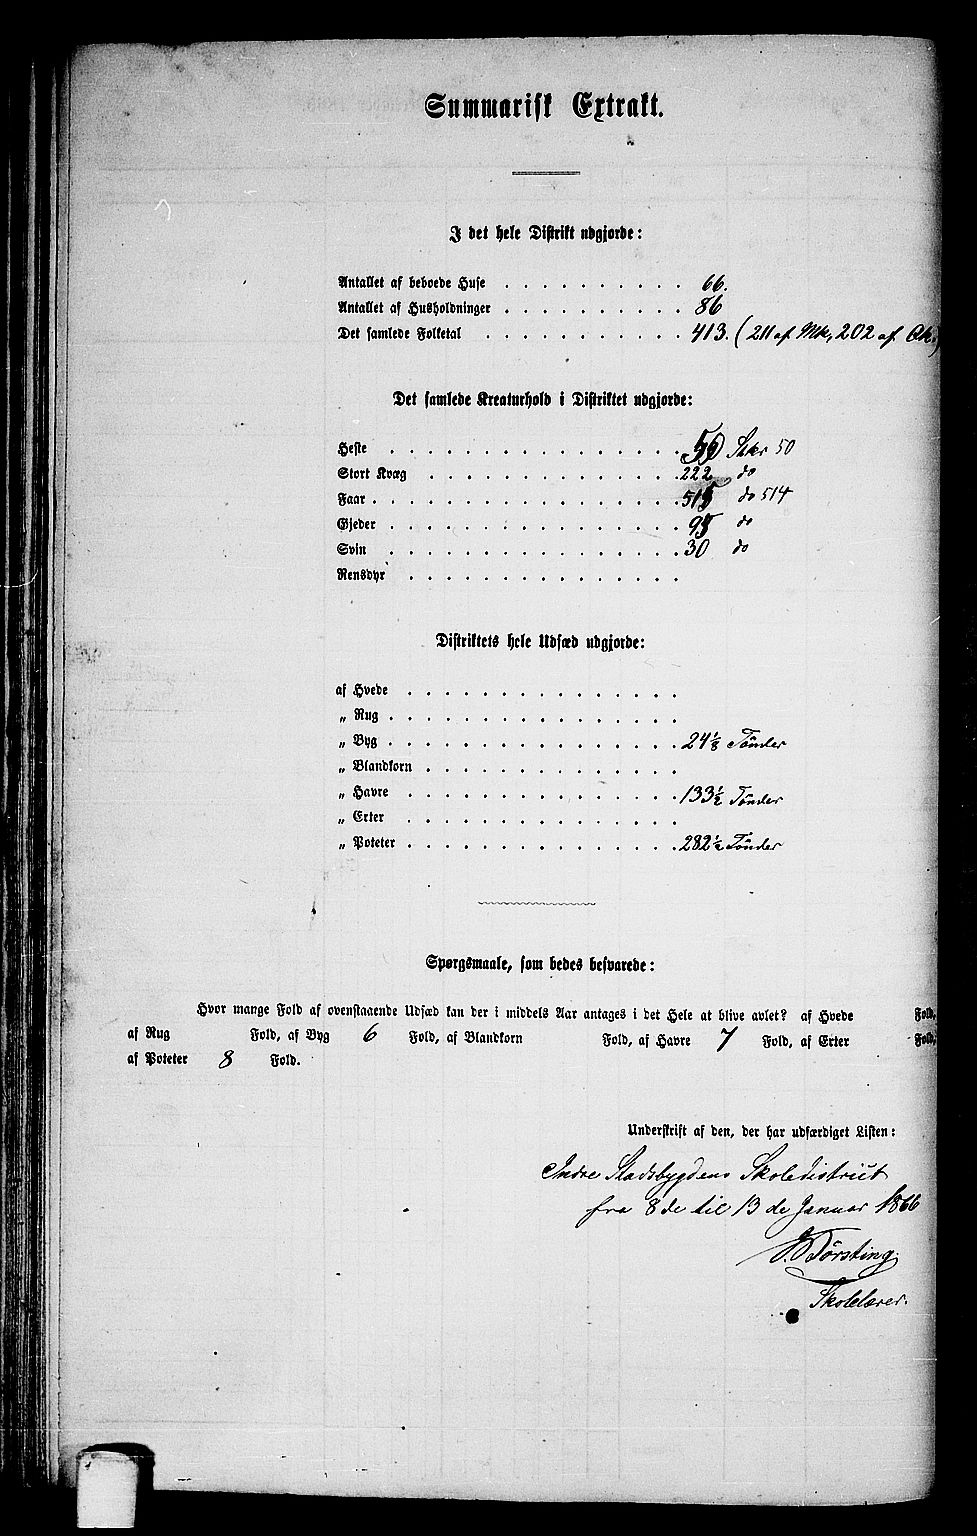 Summarisk Extrakt.
I det hele Distrikt udgjorde:
Antallet af beboede Huse . . . . . . . . . . 66.
Antallet af Husholdninger . . . . . . . . . . 86
Det samlede Folketal . . . . . . . . . . . 413. (211 af Mk, 202 af Qk.)
Det samlede Kreaturhold i Distriktet udgjorde:
Heste . . . . . . . . . . . . . . . . Stkr 50
Stort Kvæg . . . . . . . . . . . . . . 222 do
Faar . . . . . . . . . . . . . . . . . 515 do 514
Gjeder . . . . . . . . . . . . . . . . do
Svin . . . . . . . . . . . . . . . . 30 do
Rensdyr . . . . . . . . . . . . . . .
Distriktets hele Udsæd udgjorde:
af Hvede . . . . . . . . . . . . . . .
„ Rug . . . . . . . . . . . . . . . .
„ Byg . . . . . . . . . . . . . . . . 24⅛ Tönder
„ Blandkorn . . . . . . . . . . . . . .
„ Havre . . . . . . . . . . . . . . . 133½ Tönder
„ Erter . . . . . . . . . . . . . . .
„ Poteter . . . . . . . . . . . . . . . 282½ Tönder
Spørgsmaale, som bedes besvarede:
Hvor mange Fold af ovenstaaende Udsæd kan der i middels Aar antages i det Hele at blive avlet? af Hvede Fold,
af Rug Fold, af Byg 6 Fold, af Blandkorn Fold, af Havre 7 Fold, af Erter Fold,
af Poteter 8 Fold.
Underskrift af den, der har udfærdiget Listen:
Indre Stadsbygdens Skoledistrict
fra 8de til 13de Januar 1866
Tørsting.
Skolelærer.